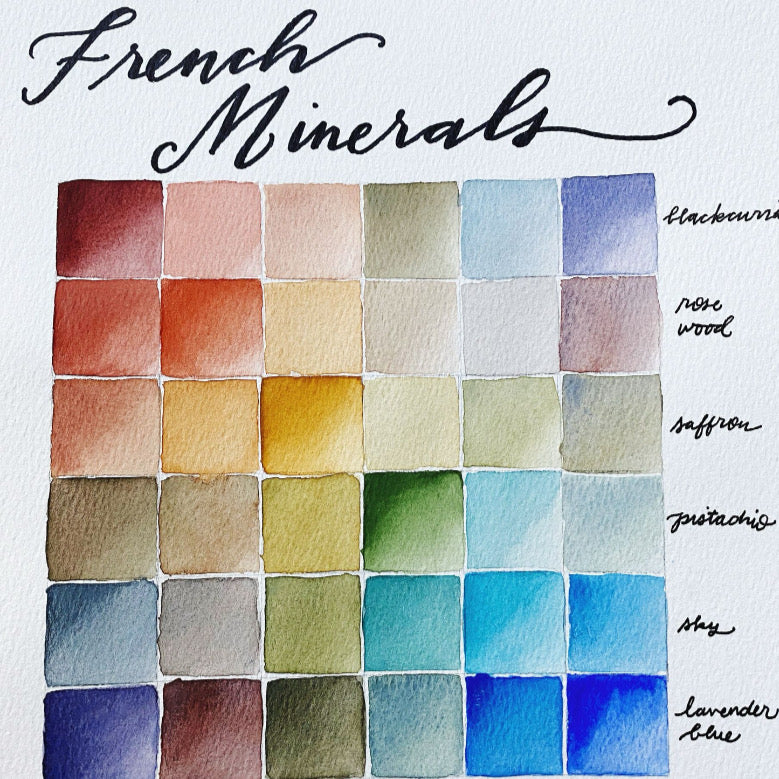 French
Minerals
rose
wood
saffron
pistachio
sky
lavender
blue